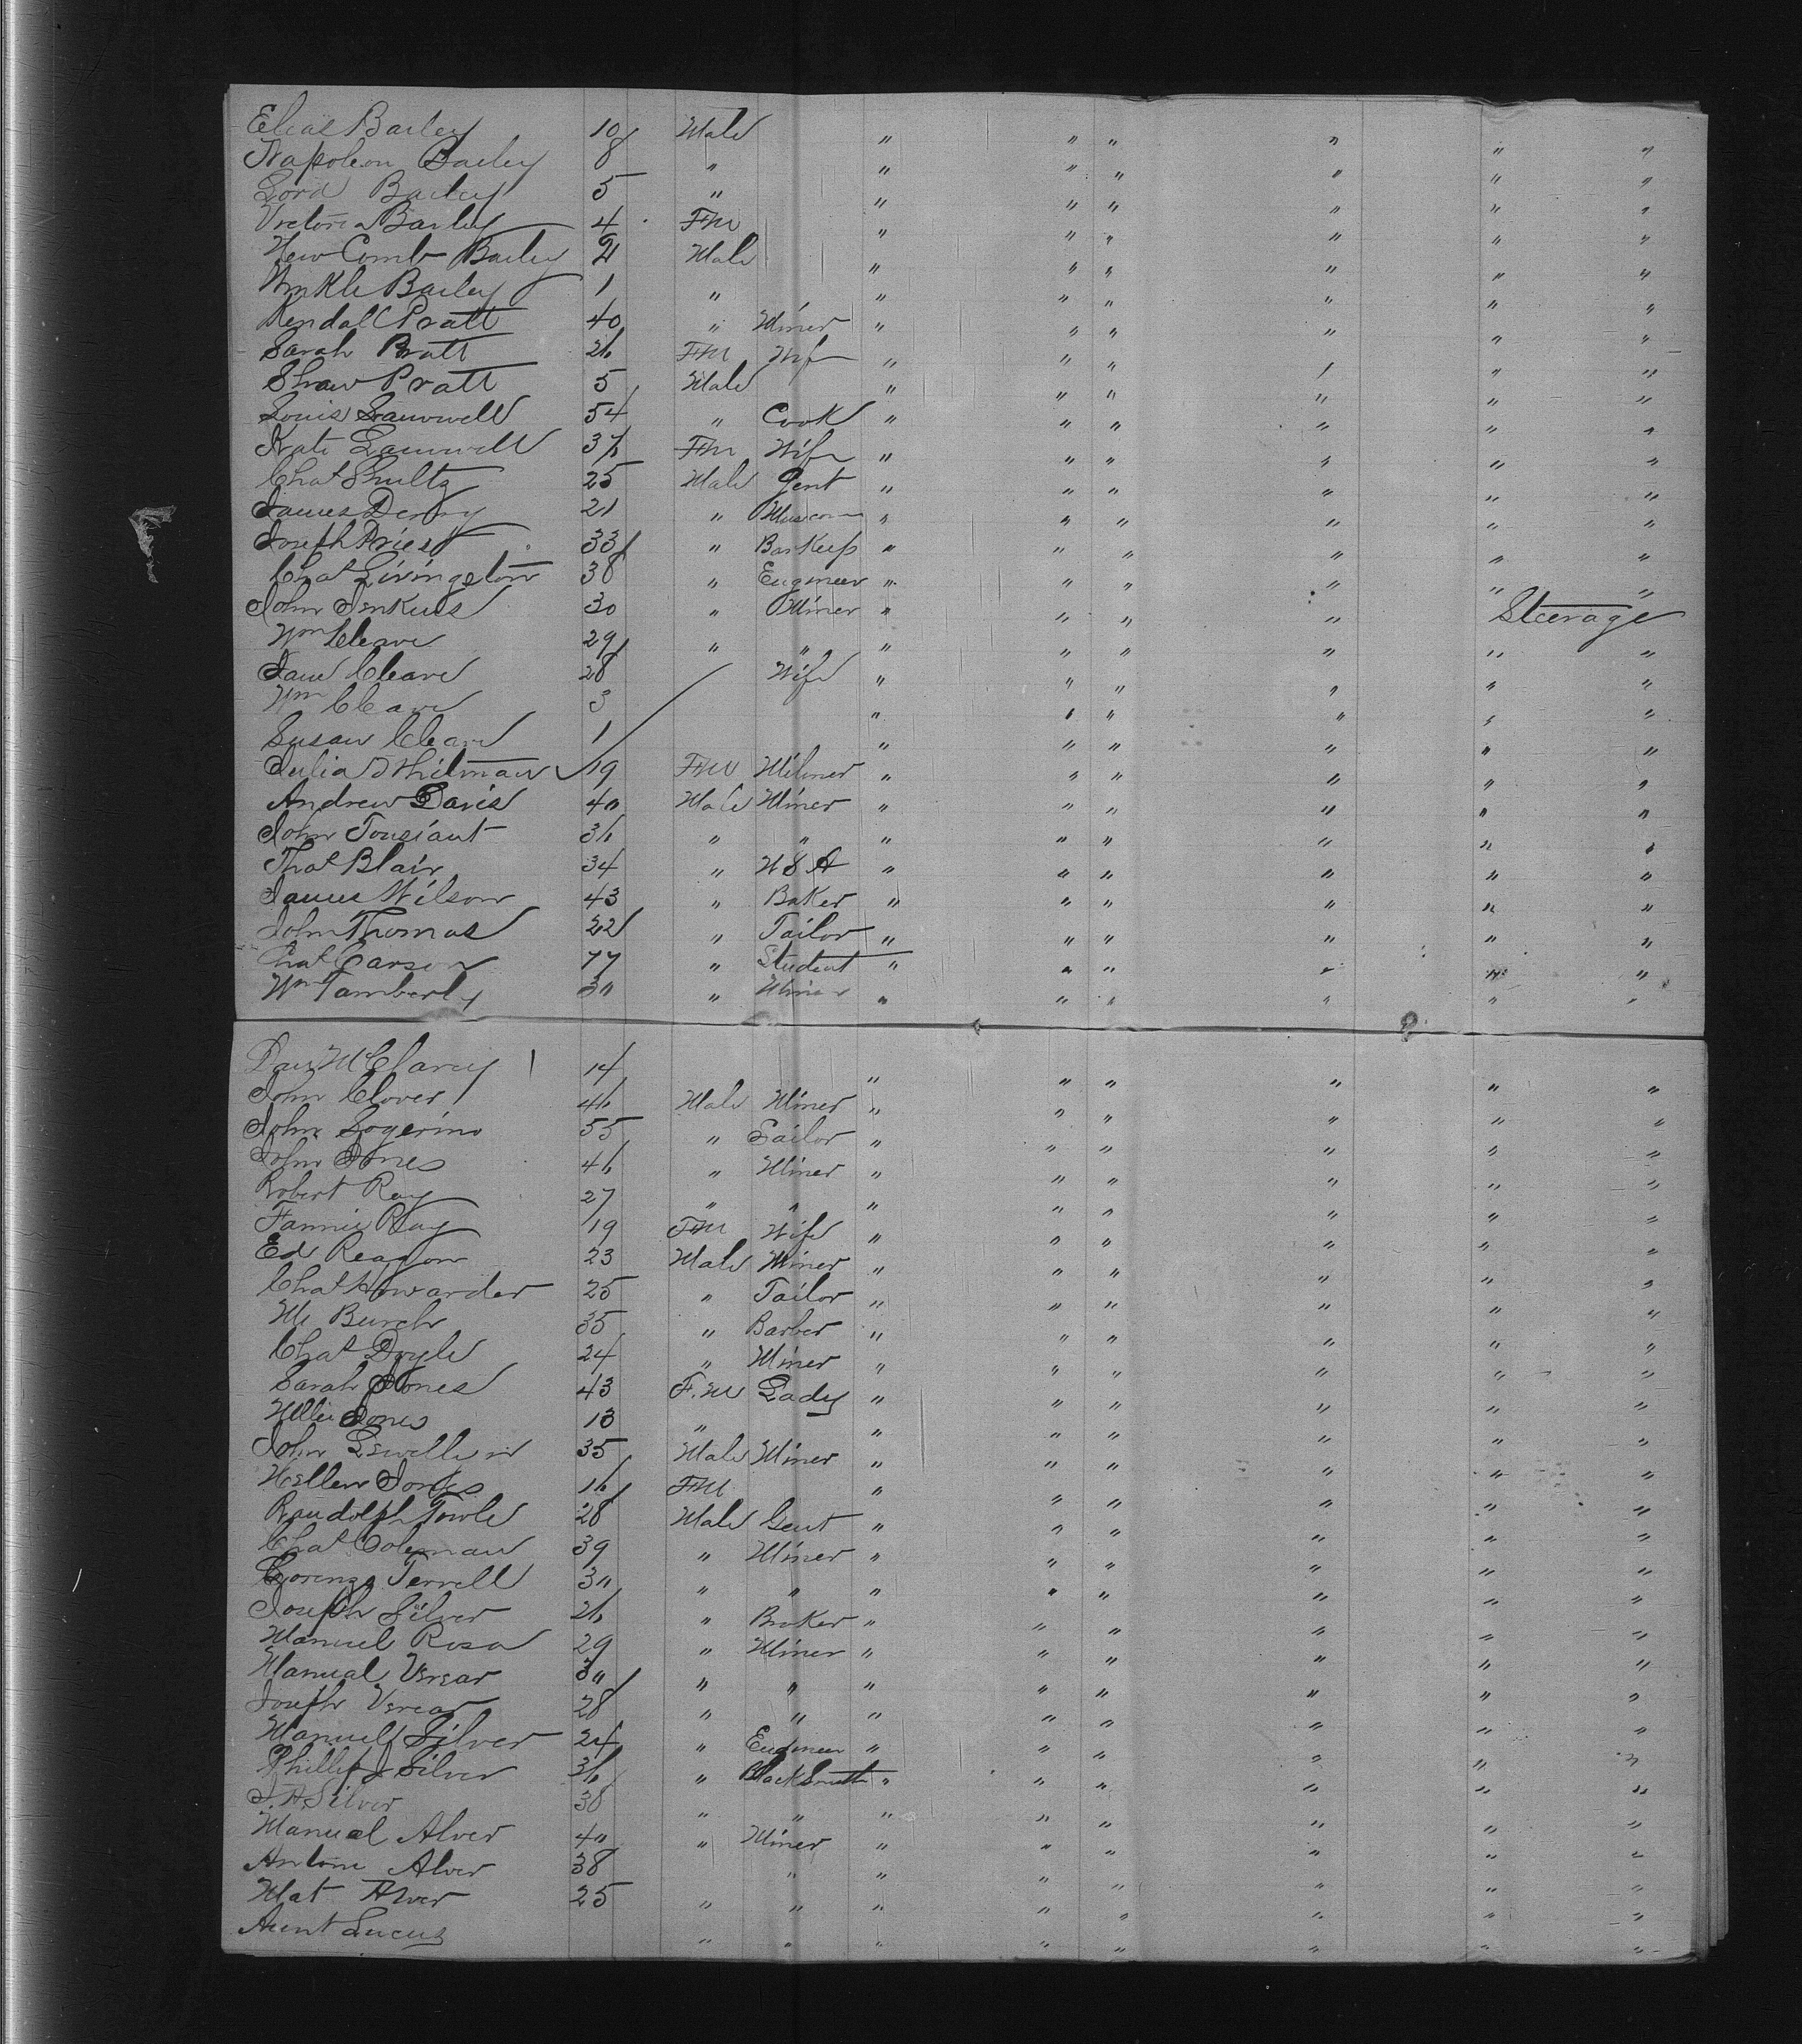 Elias Bailey 10 Male " " " " " "
Napoleon Bailey 8 " " " " " " "
Lord Bailey 5 " " " " " " "
Victoria Bailey 4 F.M " " " " " "
New Comb Bailey 2 Male " " " " " "
Bailey 1 " " " " " " "
Kendal Pratt 40 " Miner " " " " " "
Sarah Pratt 26 F.M Wife " " " " " "
Shaw Pratt 5 Male " " " " " "
Louis Lamwell 54 " Cook " " " " " "
Kate Lamwell 37 F.M Wife " " " " " "
Chas Shultz 25 Male Gent " " " " " "
James Denny 21 " " " " " " "
Joseph Priest 33 " BarKeep " " " " " "
Chas Livingston 38 " Engineer " " " " " "
John Jenkins 30 " Miner " " " " Steerage
Wm Cleave 29 " " " " " " " "
Jane Cleave 28 Wife " " " " " "
Wm Cleave 3 " " " " " "
Susan Cleave 1 " " " " " "
Julia Whitman 19 F.M Milliner " " " " " "
Andrew Davis 40 Male Miner " " " " " "
John Tousiant 36 " " " " " " " "
Thos Blair 34 " U S A " " " " " "
James Wilson 43 " Baker " " " " " "
John Thomas 22 " Tailor " " " " " "
Chas Carson 17 " Student " " " " " "
Wm Tamberly 30 " Miner " " " " " "
McClarey 14 " " " " " "
John Clover 46 Male Miner " " " " " "
John Sogerino 55 " Sailor " " " " " "
John Jones 46 " Miner " " " " " "
Robert Ray 27 " " " " " " " "
Fannie Ray 19 F.M Wife " " " " " "
Ed Reagon 23 Male Miner " " " " " "
Chas Howarder 25 " Tailor " " " " " "
Mr Burch 35 " Barber " " " " " "
Chas Doyle 24 " Miner " " " " " "
Sarah Jones 43 F.M Lady " " " " " "
Jones 13 " " " " " " "
John Lewellen 35 Male Miner " " " " " "
Hellen Jones 16 F.M " " " " " "
Randolph Towle 28 Male Gent " " " " " "
Chas Coleman 39 " Miner " " " " " "
Lorenzo Terrell 30 " " " " " " " "
Joseph Silver 26 " Broker " " " " " "
Manuel Rosa 29 " Miner " " " " " "
Manual Verear 30 " " " " " " " "
Joseph Verear 28 " " " " " " " "
Manuel Silver 24 " Engineer " " " " " "
Phillip J Silver 36 " BlackSmith " " " " " "
J. A. Silver 38 " " " " " " " "
Manual Alver 40 " Miner " " " " " "
Antone Alver 38 " " " " " " "
Mat Alver 25 " " " " " " " "
Lucus " " " " " " " "